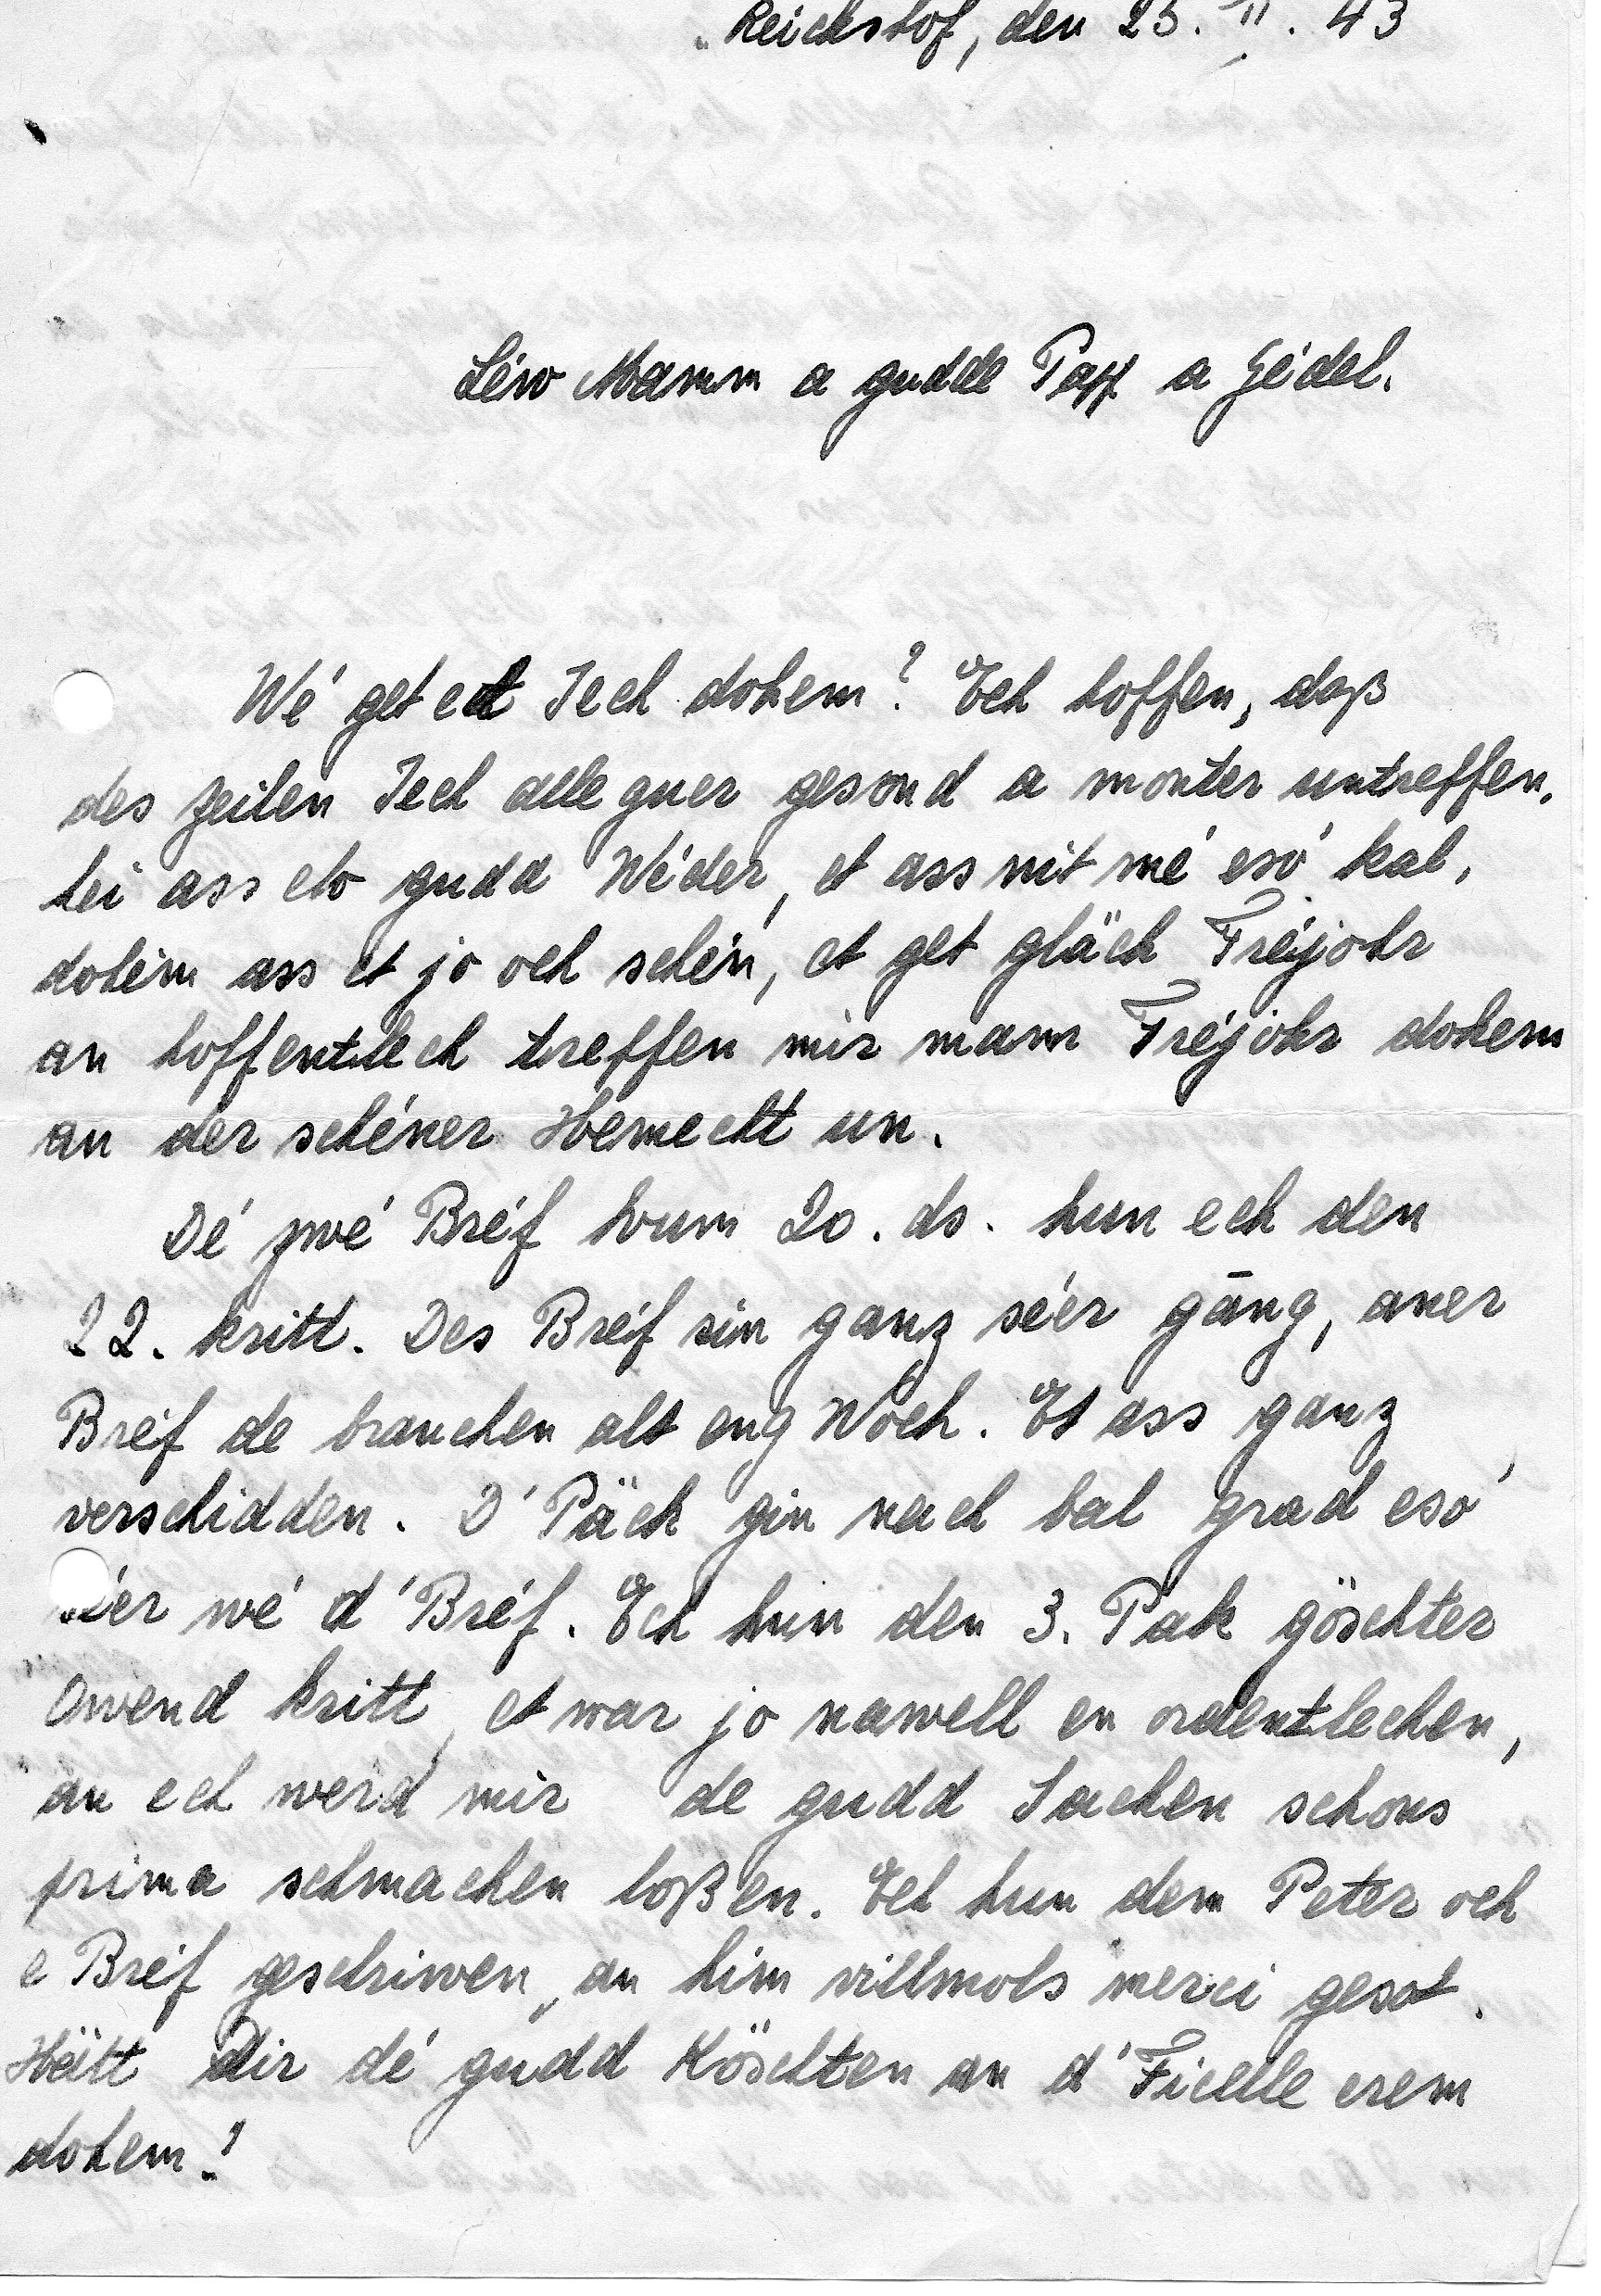 Reichshof, den 23. II. 43
Léiw Mamm a gudde Papp a Gédel.
Wé get et Iech dohem? Ech hoffen, daß
des Zeilen Iech alleguer gesond a monter untreffen.
Hei ass elo gudd Wéder, et ass nit mé esó kal,
dohém ass et jo och schén, et get gläch Fréijohr
an hoffentlech treffen mir mam Fréjohr dohem
an der schéner Hemecht un.
Dé zwé Bréf vum 20. ds. hun ech den
22. kritt. Des Bréif sin ganz séer gāng, aner
Bréif de brauchen alt eng Woch. Et ass ganz
verschidden. D'Päck gin nach bal grad esó
séer wé d'Bréf. Ech hun den 3. Pak göschter
Owend kritt, et war jo nawell en ordentlechen,
an ech werd mir de gudd Sachen schons
prima schmachen loßen. Ech hun dem Peter och
e Bréif geschriwen, an him villmols merci gesot.
Hätt dir dé gudd Köschten an d'Ficelle erem
dohem?